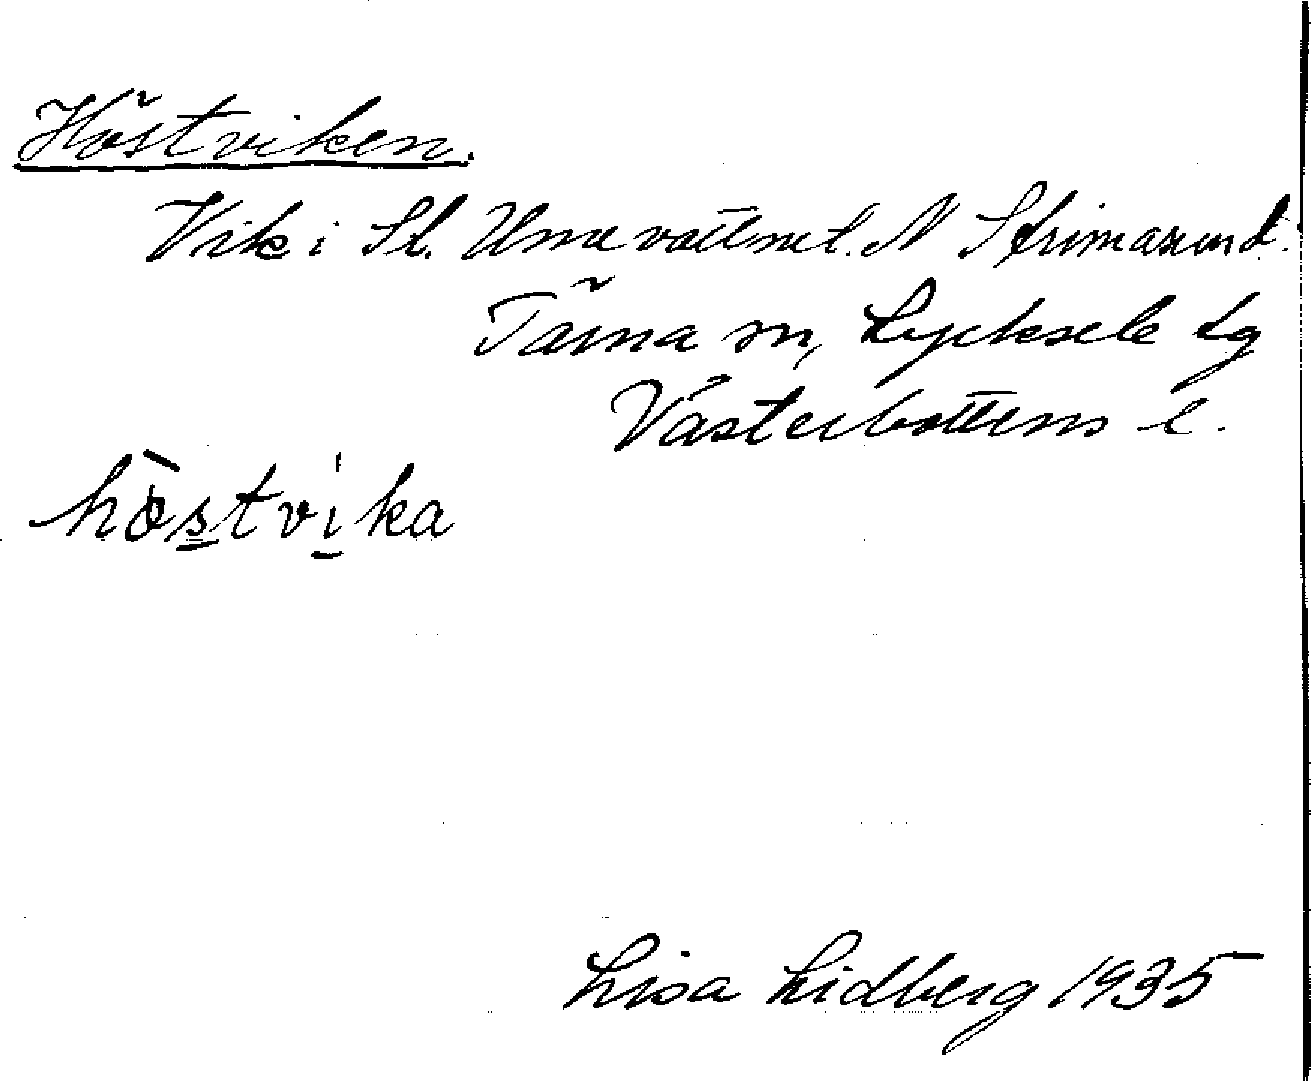 Höstviken.
Vik i St. Umevattnet. N Strimasund.
Tärna sn, Lycksele lg
Västerbottens l.
hòstvika
Lisa Lidberg 1935